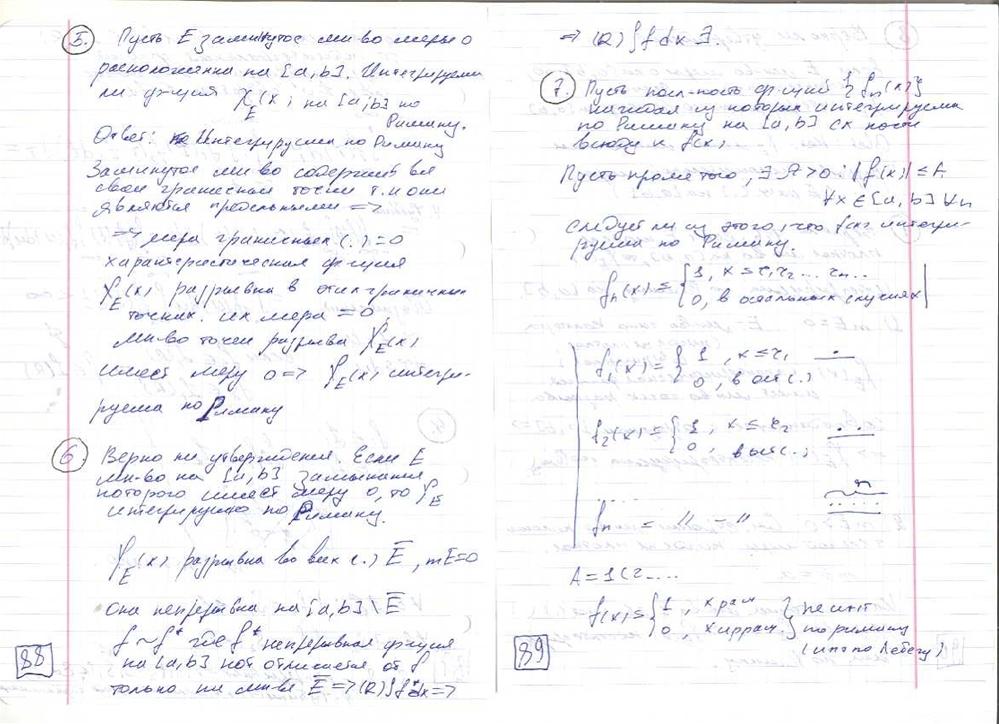 5. Пусть E замкнутое мн-во меры 0
расположенна на [a,b]. Интегрируема
ли ф-ция χ_E(x) на [a,b] по
Риману.
Ответ: Интегрируема по Риману
Замкнутое мн-во содержит все
свои граничные точки т.к они
являются предельными =>
=> мера граничных (.) = 0
характеристическая ф-ция
χ_E(x) разрывна в этих граничных
точках. их мера = 0
мн-во точек разрыва χ_E(x)
имеет меру 0 => χ_E(x) интегри-
руема по Риману
6 Верно ли утверждения. Если E
мн-во на [a,b] замыкание
которого имеет меру 0, то χ_E
интегрируема по Риману.
χ_E(x) разрывна во всех (.) E̅, mE=0
Она непрерывна на [a,b] \ E̅
f ~ f* где f* непрерывная ф-ция
на [a,b] кот отличается от f
только на мн-ве E̅ => (R)∫f*dx =>
88
=> (R)∫f dx ∃.
7. Пусть посл-ность ф-ций {f_n(x)}
каждая из которых интегрируема
по Риману на [a,b] сх почти
всюду к f(x).
Пусть кроме того, ∃ A>0 : |f(x)| ≤ A
∀x ∈ [a,b] ∀n
следует ли из этого, что f(x) интегри-
руема по Риману.
f_n(x) = {1, x = r₁, r₂ ... r_n ...
0, в остальных случаях
f₁(x) = {1, x = r₁
0, в ост (.)
f₂(x) = {1, x = r₂
0, в ост (.)
.... n
f_n = " – "
A = 1 (2 ....
f(x) = {1, x рац
0, x иррац. } не инт
по риману
(инт по Лебегу)
89